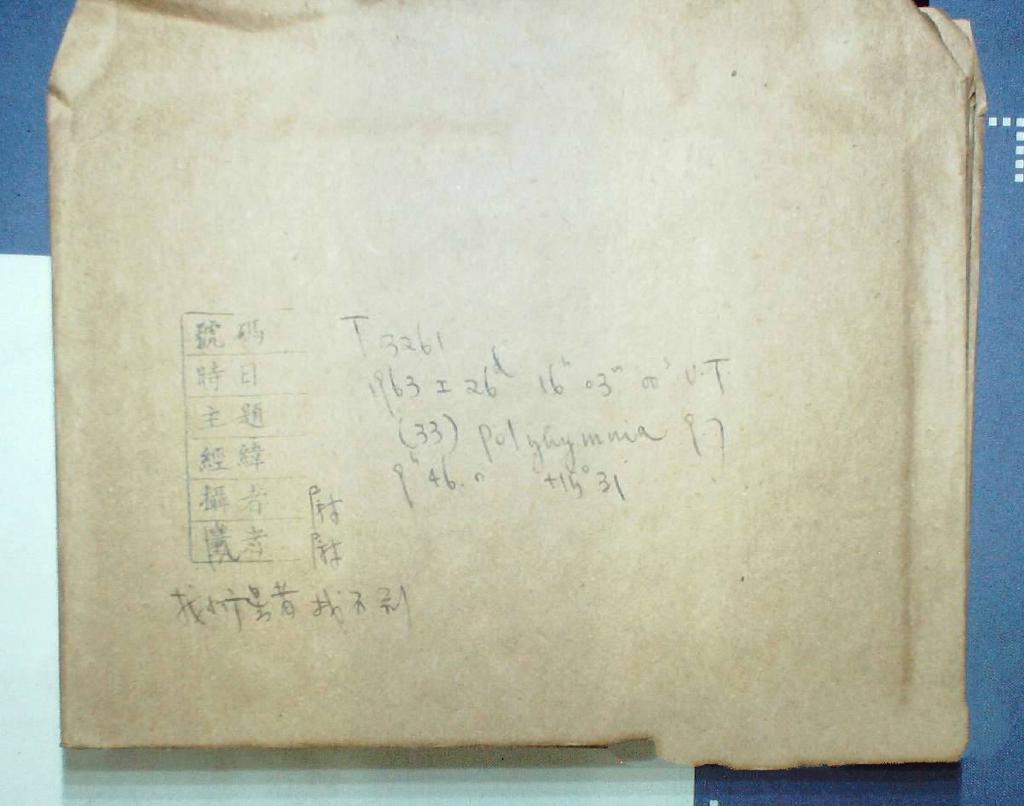 號碼 T 3261
時日 1963 I 26d 16h 03m 00s U.T
主題 (33) Polyhymnia 9.7
經緯 9h 46.0 +15° 31'
攝者
者
找不到